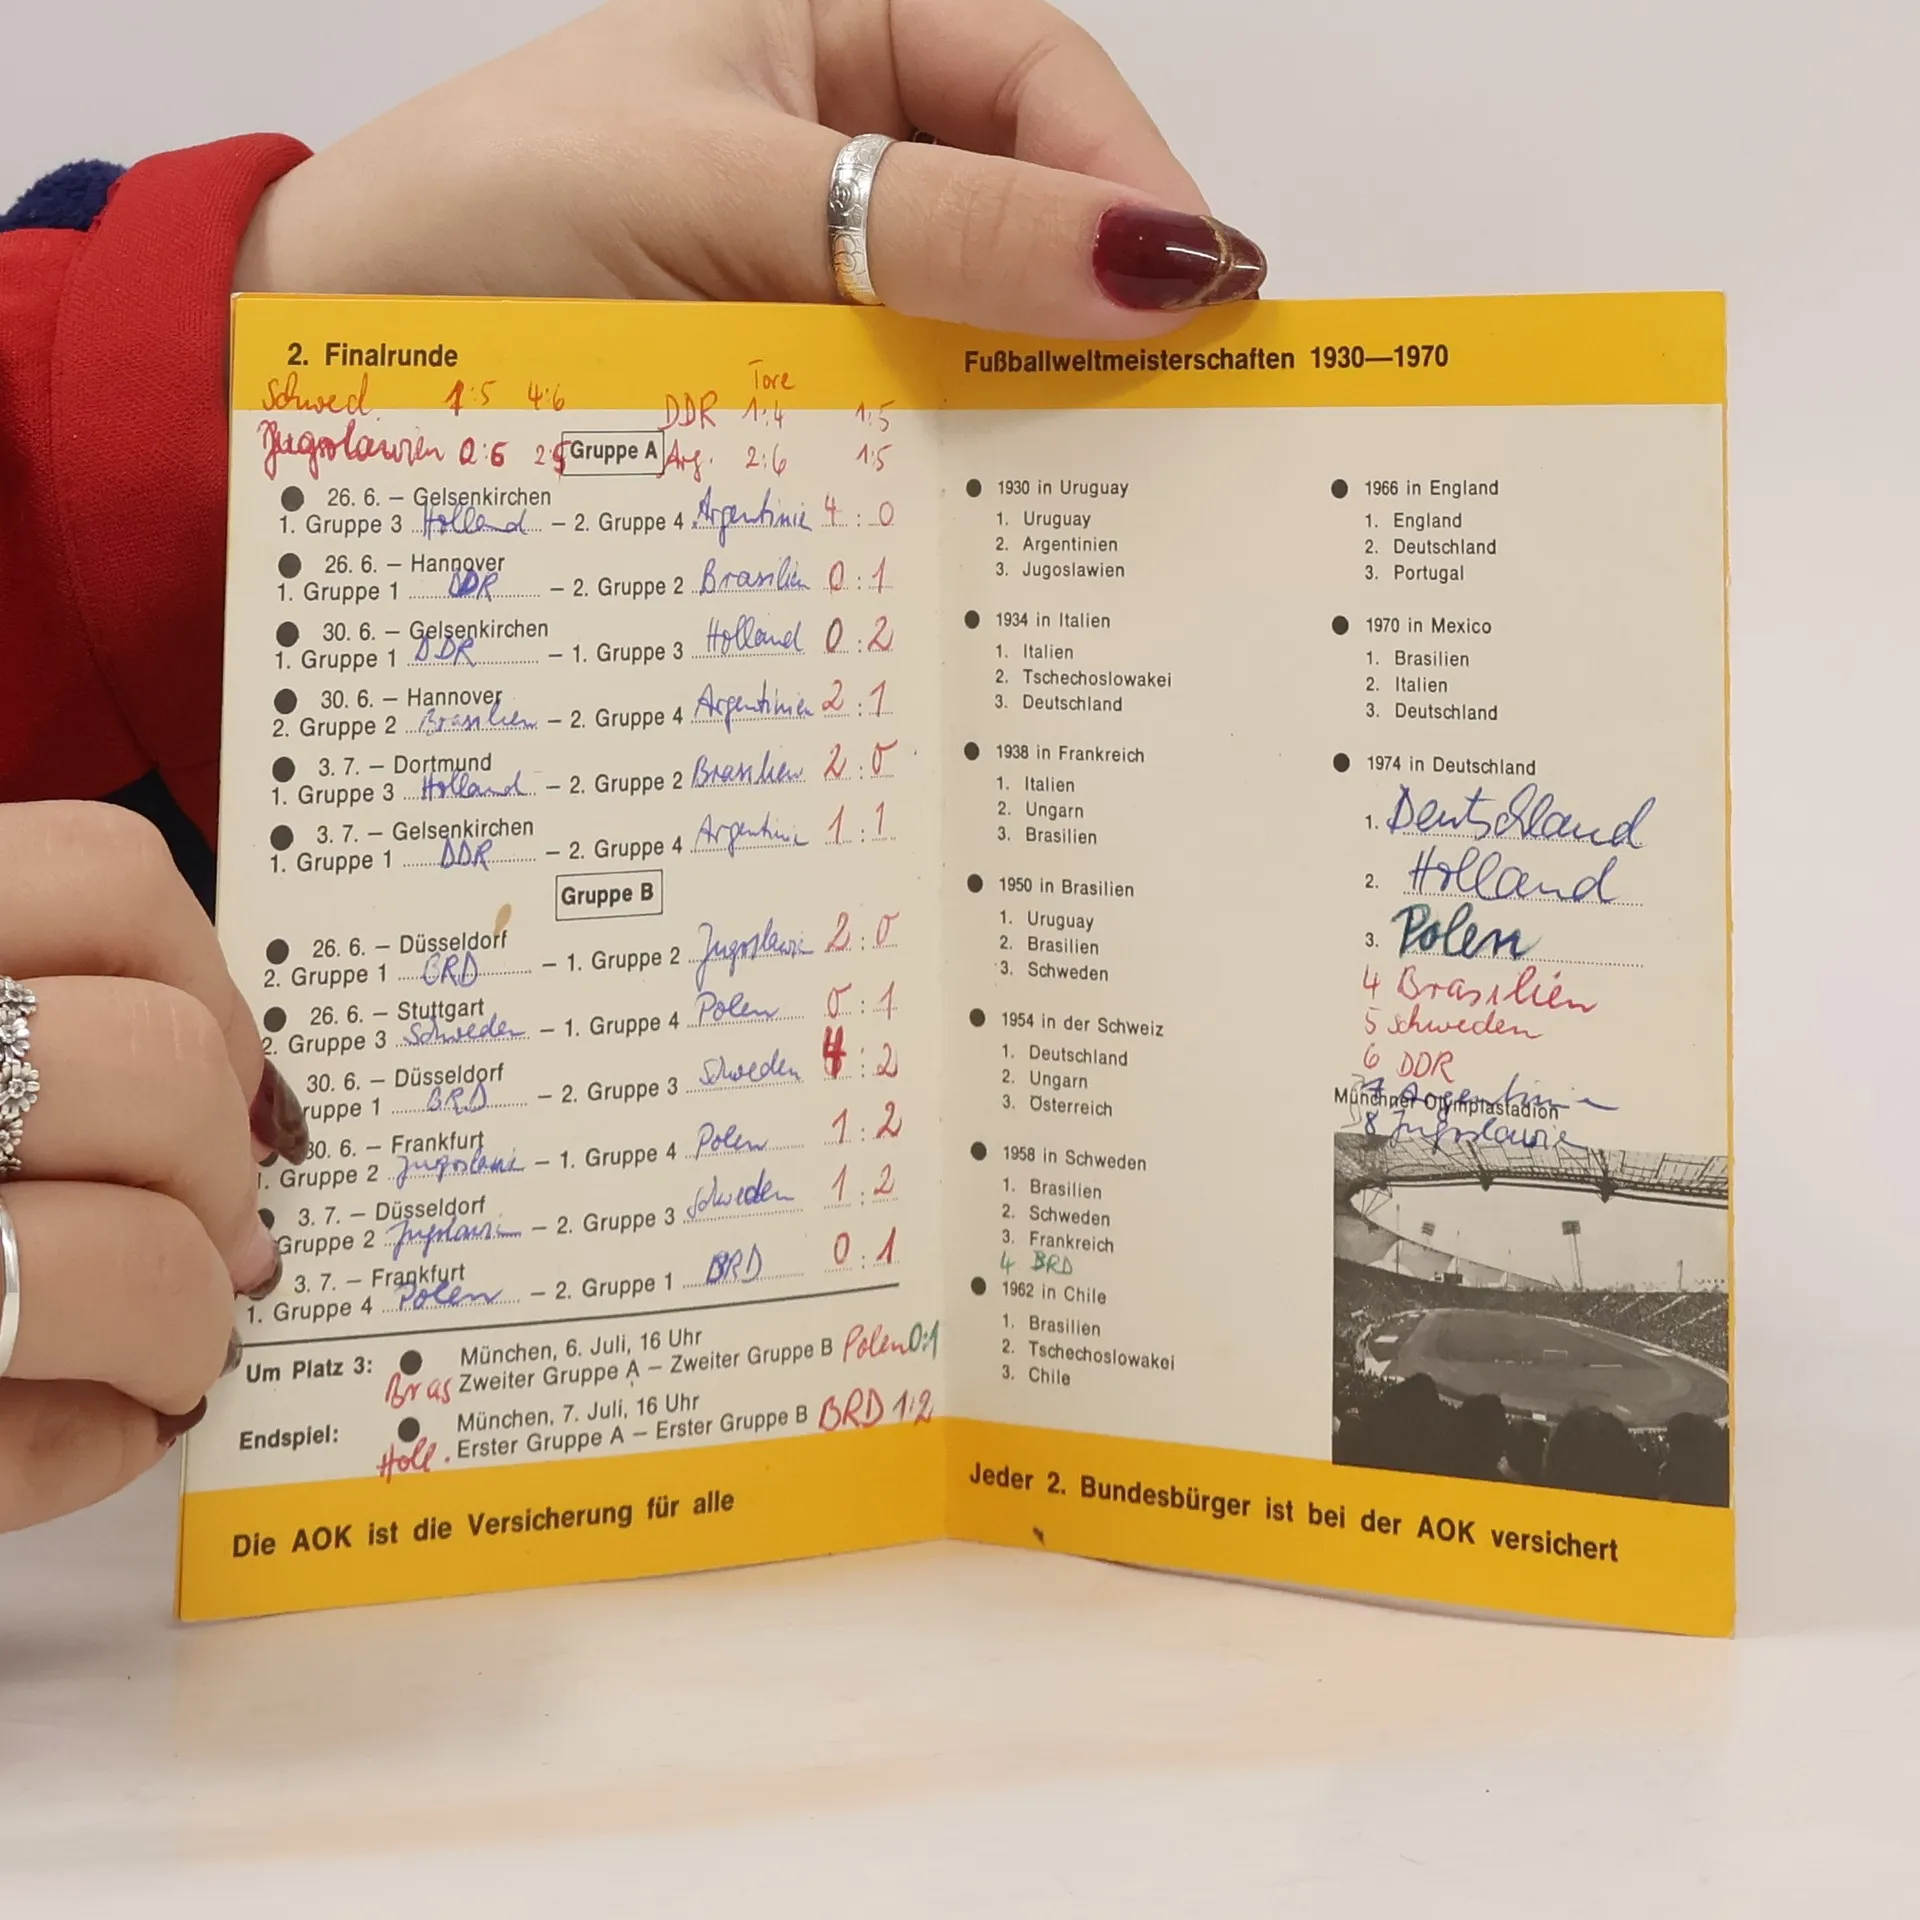 2. Finalrunde
Tore
Schwed 1:5 4:6 DDR 1:4 1:5
Jugoslawien 0:6 Gruppe A Arg. 2:6 1:5
26. 6. — Gelsenkirchen
1. Gruppe 3 Holland — 2. Gruppe 4 Argentinie 4 : 0
26. 6. — Hannover
1. Gruppe 1 DDR — 2. Gruppe 2 Brasilien 0 : 1
30. 6. — Gelsenkirchen
1. Gruppe 1 DDR — 1. Gruppe 3 Holland 0 : 2
30. 6. — Hannover
2. Gruppe 2 Brasilien — 2. Gruppe 4 Argentinien 2 : 1
3. 7. — Dortmund
1. Gruppe 3 Holland — 2. Gruppe 2 Brasilien 2 : 0
3. 7. — Gelsenkirchen
1. Gruppe 1 DDR — 2. Gruppe 4 Argentinie 1 : 1
Gruppe B
26. 6. — Düsseldorf
2. Gruppe 1 BRD — 1. Gruppe 2 Jugoslawie 2 : 0
26. 6. — Stuttgart
2. Gruppe 3 Schweden — 1. Gruppe 4 Polen 0 : 1
30. 6. — Düsseldorf
ruppe 1 BRD — 2. Gruppe 3 Schweden 4 : 2
30. 6. — Frankfurt
1. Gruppe 2 Jugoslawi — 1. Gruppe 4 Polen 1 : 2
3. 7. — Düsseldorf
Gruppe 2 Jugslawi — 2. Gruppe 3 Schweden 1 : 2
3. 7. — Frankfurt
1. Gruppe 4 Polen — 2. Gruppe 1 BRD 0 : 1
Um Platz 3: München, 6. Juli, 16 Uhr
Bras Zweiter Gruppe A — Zweiter Gruppe B Polen 0:1
Endspiel: München, 7. Juli, 16 Uhr
Holl. Erster Gruppe A — Erster Gruppe B BRD 1:2
Die AOK ist die Versicherung für alle
Fußballweltmeisterschaften 1930—1970
1930 in Uruguay
1. Uruguay
2. Argentinien
3. Jugoslawien
1934 in Italien
1. Italien
2. Tschechoslowakei
3. Deutschland
1938 in Frankreich
1. Italien
2. Ungarn
3. Brasilien
1950 in Brasilien
1. Uruguay
2. Brasilien
3. Schweden
1954 in der Schweiz
1. Deutschland
2. Ungarn
3. Österreich
1958 in Schweden
1. Brasilien
2. Schweden
3. Frankreich
4 BRD
1962 in Chile
1. Brasilien
2. Tschechoslowakei
3. Chile
1966 in England
1. England
2. Deutschland
3. Portugal
1970 in Mexico
1. Brasilien
2. Italien
3. Deutschland
1974 in Deutschland
1. Deutschland
2. Holland
3. Polen
4 Brasilien
5 Schweden
6 DDR
7 Argentinie
Münchner Olympiastadion
8 Jugoslawie
Jeder 2. Bundesbürger ist bei der AOK versichert